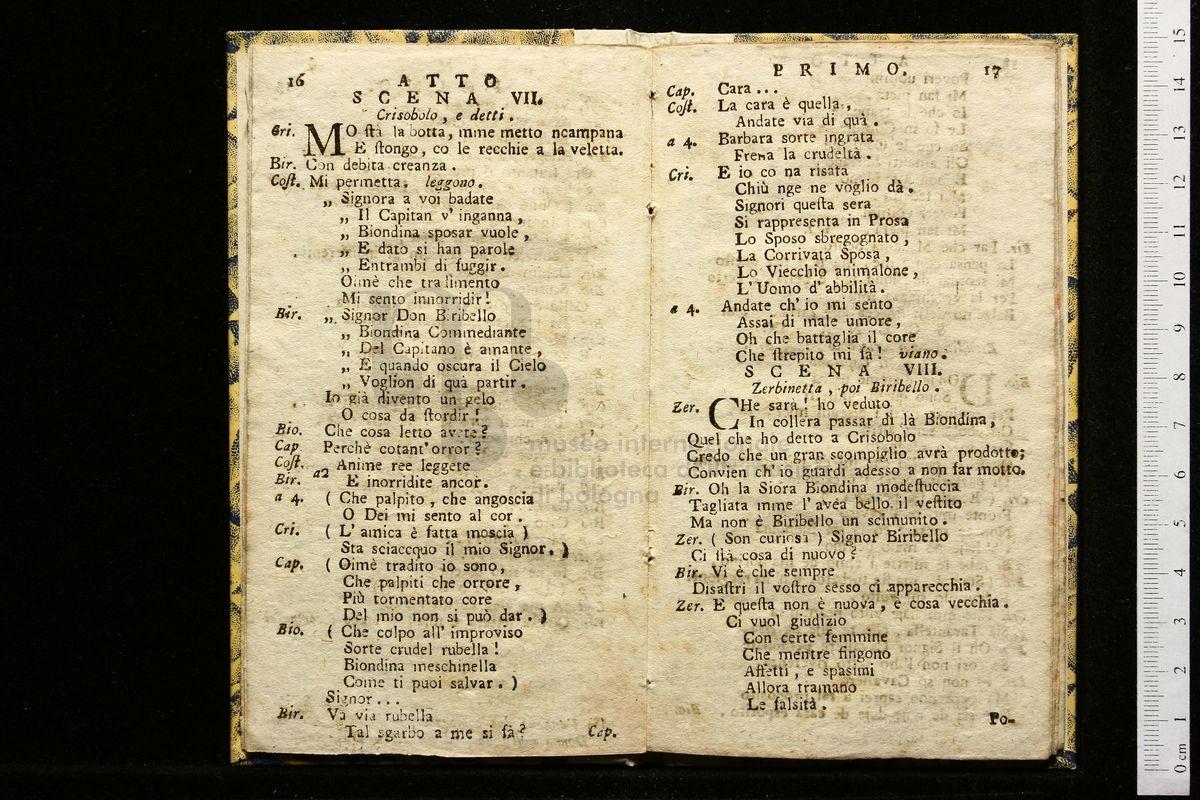 16 ATTO
SCENA VII.
Crisobolo, e detti.
Cri. MO stà la botta, mme metto ncampana
E stongo, co le recchie a la veletta.
Bir. Con debita creanza.
Cost. Mi permetta. leggono.
„ Signora a voi badate
„ Il Capitan v' inganna,
„ Biondina sposar vuole,
„ E dato si han parole
„ Entrambi di fuggir.
Oimè che tralimento
Mi sento innorridir!
Bir. „ Signor Don Biribello
„ Biondina Commediante
„ Del Capitano è amante,
„ E quando oscura il Cielo
„ Voglion di quà partir.
Io già divento un gelo
O cosa da stordir!
Bio. Che cosa letto avete?
Cap Perchè cotant' orror?
Cost. Anime ree leggete
Bir. a2 E inorridite ancor.
a 4. ( Che palpito, che angoscia
O Dei mi sento al cor.
Cri. ( L' amica è fatta moscia )
Sta sciaccquo il mio Signor. )
Cap. ( Oimè tradito io sono,
Che palpiti che orrore,
Più tormentato core
Del mio non si può dar. )
Bio. ( Che colpo all' improviso
Sorte crudel rubella!
Biondina meschinella
Come ti puoi salvar. )
Signor...
Bir. Va via rubella
Tal sgarbo a me si fà? Cap.
PRIMO. 17
Cap. Cara...
Cost. La cara è quella,
Andate via di quà.
a 4. Barbara sorte ingrata
Frena la crudeltà.
Cri. E io co na risata
Chiù nge ne voglio dà.
Signori questa sera
Si rappresenta in Prosa
Lo Sposo sbregognato,
La Corrivata Sposa,
Lo Viecchio animalone,
L' Uomo d' abbilità.
a 4. Andate ch' io mi sento
Assai di male umore,
Oh che battaglia il core
Che strepito mi fà! viano.
SCENA VIII.
Zerbinetta, poi Biribello.
Zer. CHe sarà! ho veduto
In collera passar di là Biondina,
Quel che ho detto a Crisobolo
Credo che un gran scompiglio avrà prodotto;
Convien ch' io guardi adesso a non far motto.
Bir. Oh la Siora Biondina modestuccia
Tagliata mme l' avea bello il vestito
Ma non è Biribello un scimunito.
Zer. ( Son curiosa ) Signor Biribello
Ci stà cosa di nuovo?
Bir. Vi è che sempre
Disastri il vostro sesso ci apparecchia.
Zer. E questa non è nuova, è cosa vecchia.
Ci vuol giudizio
Con certe femmine
Che mentre fingono
Affetti, e spasimi
Allora tramano
Le falsità.
Po-
museo internazionale
e biblioteca della
di bologna
0 cm 1 2 3 4 5 6 7 8 9 10 11 12 13 14 15